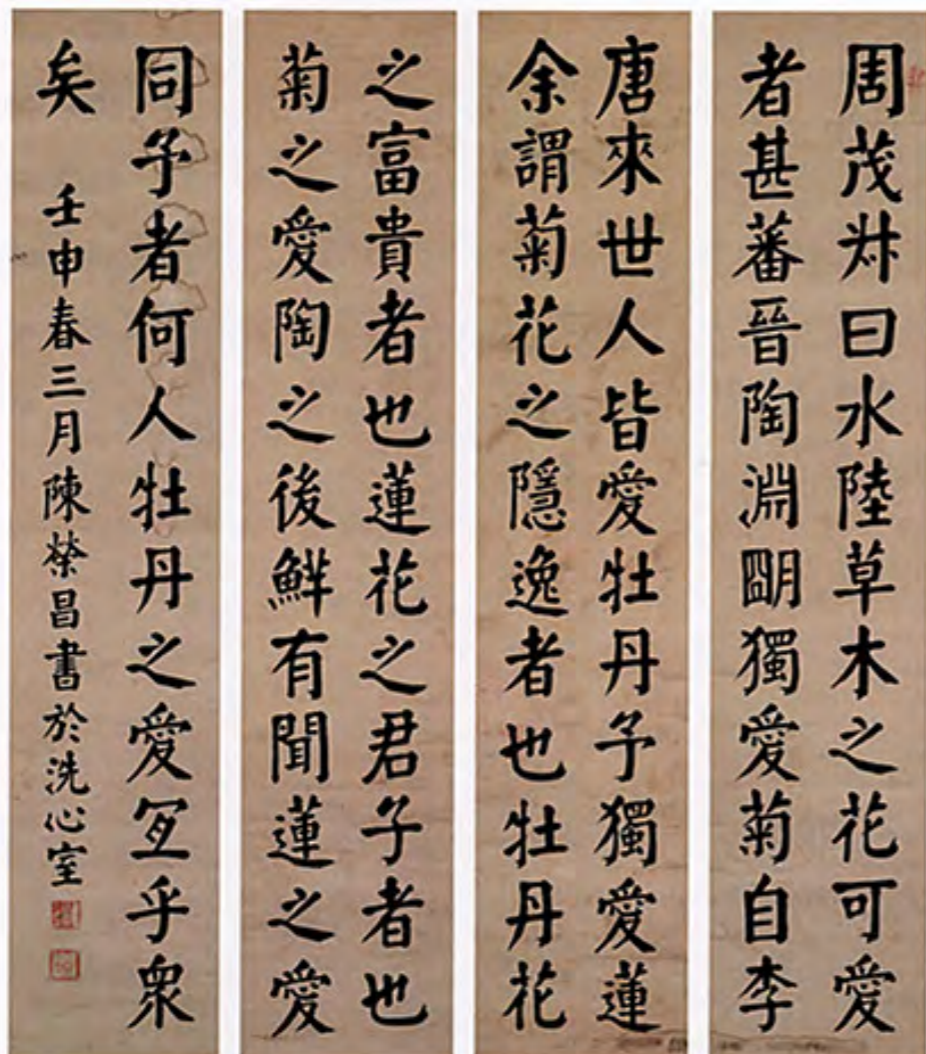 周茂叔曰水陸草木之花可愛
者甚蕃晉陶淵朙獨愛菊自李
唐來世人皆愛牡丹予獨愛蓮
余謂菊花之隱逸者也牡丹花
之富貴者也蓮花之君子者也
菊之愛陶之後鮮有聞蓮之愛
同予者何人牡丹之愛冝乎衆
矣 壬申春三月陳榮昌書於洗心室